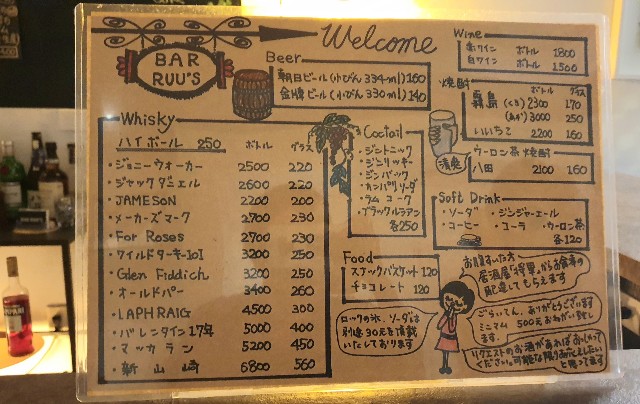 BAR
RUU'S
Welcome
Beer
朝日ビール(小びん334ml)160
金牌ビール(小びん330ml)140
Wine
赤ワイン ボトル 1800
白ワイン ボトル 1500
焼酎
ボトル グラス
霧島 (くろ) 2300 170
(あか) 3000 250
いいちこ 2200 160
清爽
ウーロン茶焼酎
八田 2100 160
Whisky
ハイボール 250 ボトル グラス
・ジョニーウォーカー 2500 220
・ジャックダニエル 2600 220
・JAMESON 2200 200
・メーカーズマーク 2700 230
・For Roses 2700 230
・ワイルドターキー101 3200 250
・Glen Fiddich 3200 250
・オールドパー 3400 260
・LAPHRAIG 4500 300
・バレンタイン17年 5000 400
・マッカラン 5200 450
・新山崎 6800 560
Coctail
・ジントニック
・ジンリッキー
・ジンバック
・カンパリソーダ
・ラムコーク
・ブラックルシアン
各250
Soft Drink
・ソーダ ・ジンジャーエール
・コーヒー ・コーラ ・ウーロン茶
各120
Food
スナックバスケット 120
チョコレート 120
ロックの氷、ソーダは
別途30元を頂戴
いたしております
お腹すいた方
居酒屋「将軍」からお食事の
配達してもらえます
ごらいてん、ありがとうございます
ミニマム 500元おねがい致し
ます。
リクエストのお酒があればおっしゃって
ください。可能な限りお応えしたい
と思ってます